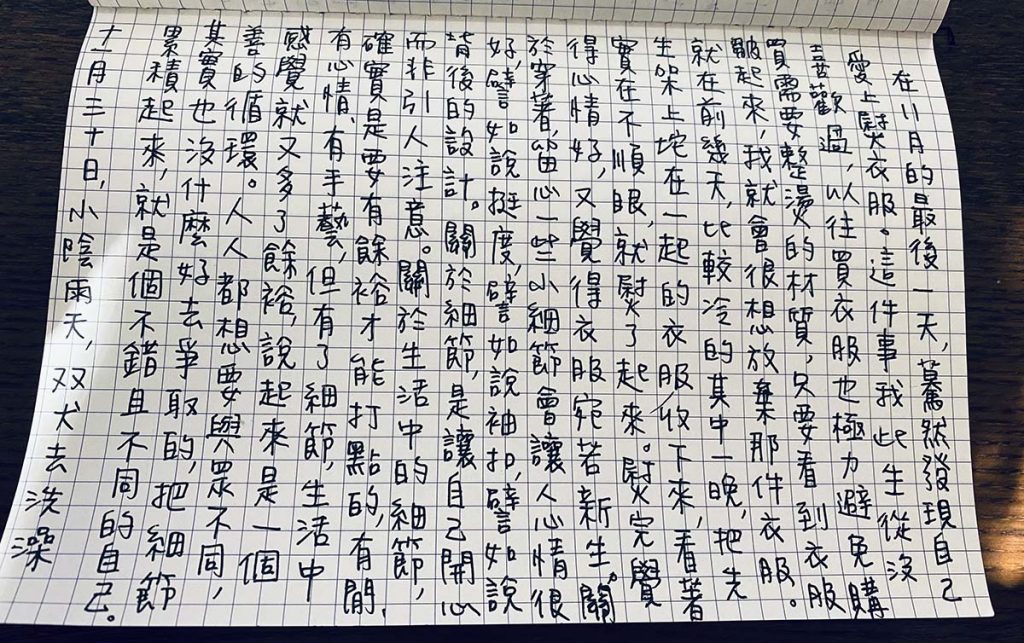 在11月的最後一天，驀然發現自己
愛上熨衣服。這件事我此生從沒
喜歡過，以往買衣服也極力避免購
買需要整燙的材質，只要看到衣服
皺起來，我就會很想放棄那件衣服。
就在前幾天，比較冷的其中一晚，把先
生架上坨在一起的衣服收下來，看著
實在不順眼，就熨了起來。熨完覺
得心情好，又覺得衣服宛若新生。關
於穿著，留心一些小細節會讓人心情很
好，譬如說挺度，譬如說袖扣，譬如說
背後的設計。關於細節，是讓自己開心
而非引人注意。關於生活中的細節，
確實是要有餘裕才能打點的，有閒，
有心情，有手藝，但有了細節，生活中
感覺就又多了餘裕，說起來是一個
善的循環。人人都想要與眾不同，
其實也沒什麼好去爭取的，把細節
累積起來，就是個不錯且不同的自己。
十一月三十日，小陰雨天，双犬去洗澡